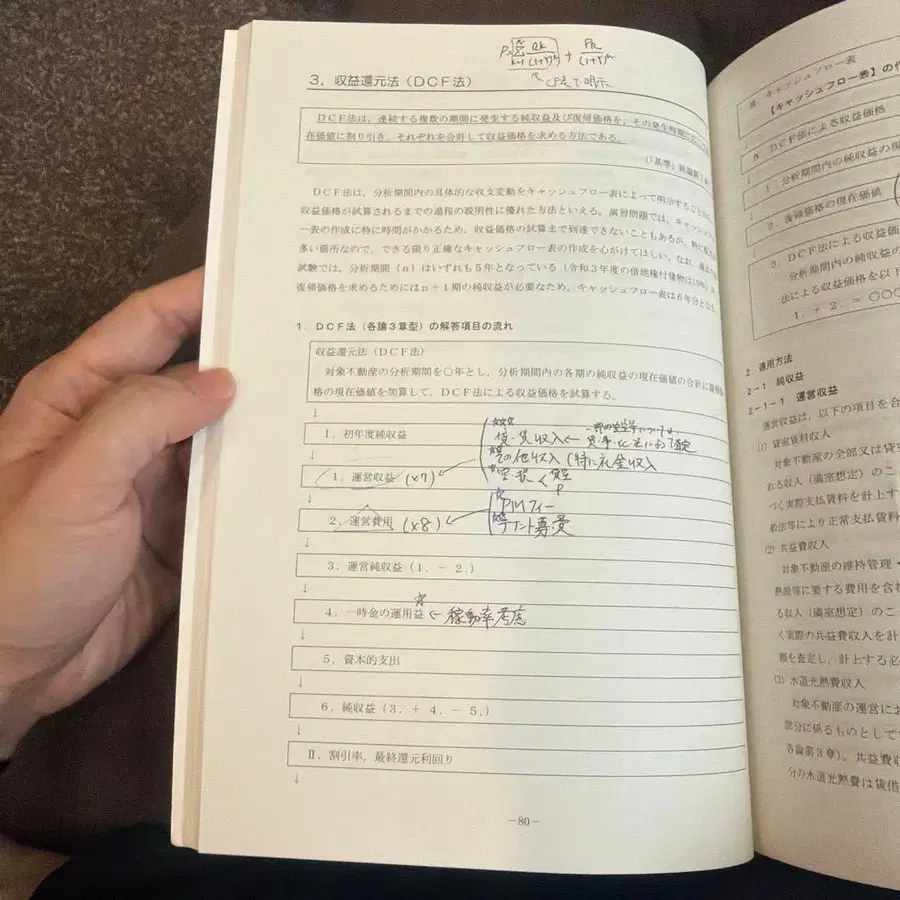 3．収益還元法（ＤＣＦ法）
P=
CF表で明示
ＤＣＦ法は、連続する複数の期間に発生する純収益及び復帰価格を、その発生時期に
在価値に割り引き、それぞれを合計して収益価格を求める方法である。
（「基準」総論第7章
ＤＣＦ法は、分析期間内の具体的な収支変動をキャッシュフロー表によって明示すること
収益価格が試算されるまでの過程の説明性に優れた方法といえる。演習問題では、キャッシュフ
ー表の作成に特に時間がかかるため、収益価格の試算まで到達できないこともあるが、特に配点
多い箇所なので、できる限り正確なキャッシュフロー表の作成を心がけてほしい。なお、過去
試験では、分析期間（ｎ）はいずれも５年となっている（令和３年度の借地権付建物は10年）
復帰価格を求めるためにはｎ＋１期の純収益が必要なため、キャッシュフロー表は６年分となる。
1．ＤＣＦ法（各論３章型）の解答項目の流れ
収益還元法（ＤＣＦ法）
対象不動産の分析期間を○年とし、分析期間内の各期の純収益の現在価値の合計に復帰価
格の現在価値を加算して、ＤＣＦ法による収益価格を試算する。
↓
Ⅰ．初年度純収益
貸・賃収入←
↓
その他収入（特に礼金収入
1．運営収益 (×7)
空損
↓
PMフィー
2．運営費用 (×8)
テナント募費
↓
3．運営純収益（1．－2．）
↓
4．一時金の運用益 ← 稼動率考慮
↓
5．資本的支出
↓
6．純収益（3．＋4．－5．）
↓
Ⅱ．割引率，最終還元利回り
↓
－80－
Ⅲ．キャッシュフロー表
【キャッシュフロー表】の作
Ⅳ ＤＣＦ法による収益価格
1．分析期間内の純収益の現
2．復帰価格の現在価値
3．ＤＣＦ法による収益価
分析期間内の純収益の
法による収益価格を以下
1．＋2．＝○○○
2．適用方法
2－1 純収益
2－1－1 運営収益
運営収益は、以下の項目を合
(1) 貸室賃料収入
対象不動産の全部又は貸室
れる収入（満室想定）のこ
づく実際支払賃料を計上す
較法等により正常支払賃料
(2) 共益費収入
対象不動産の維持管理・
熱費等に要する費用を含む
る収入（満室想定）のこ
く実際の共益費収入を計
額を査定し、計上する必
(3) 水道光熱費収入
対象不動産の運営にお
部分に係るものとして
各論第３章）。共益費収
分の水道光熱費は賃借